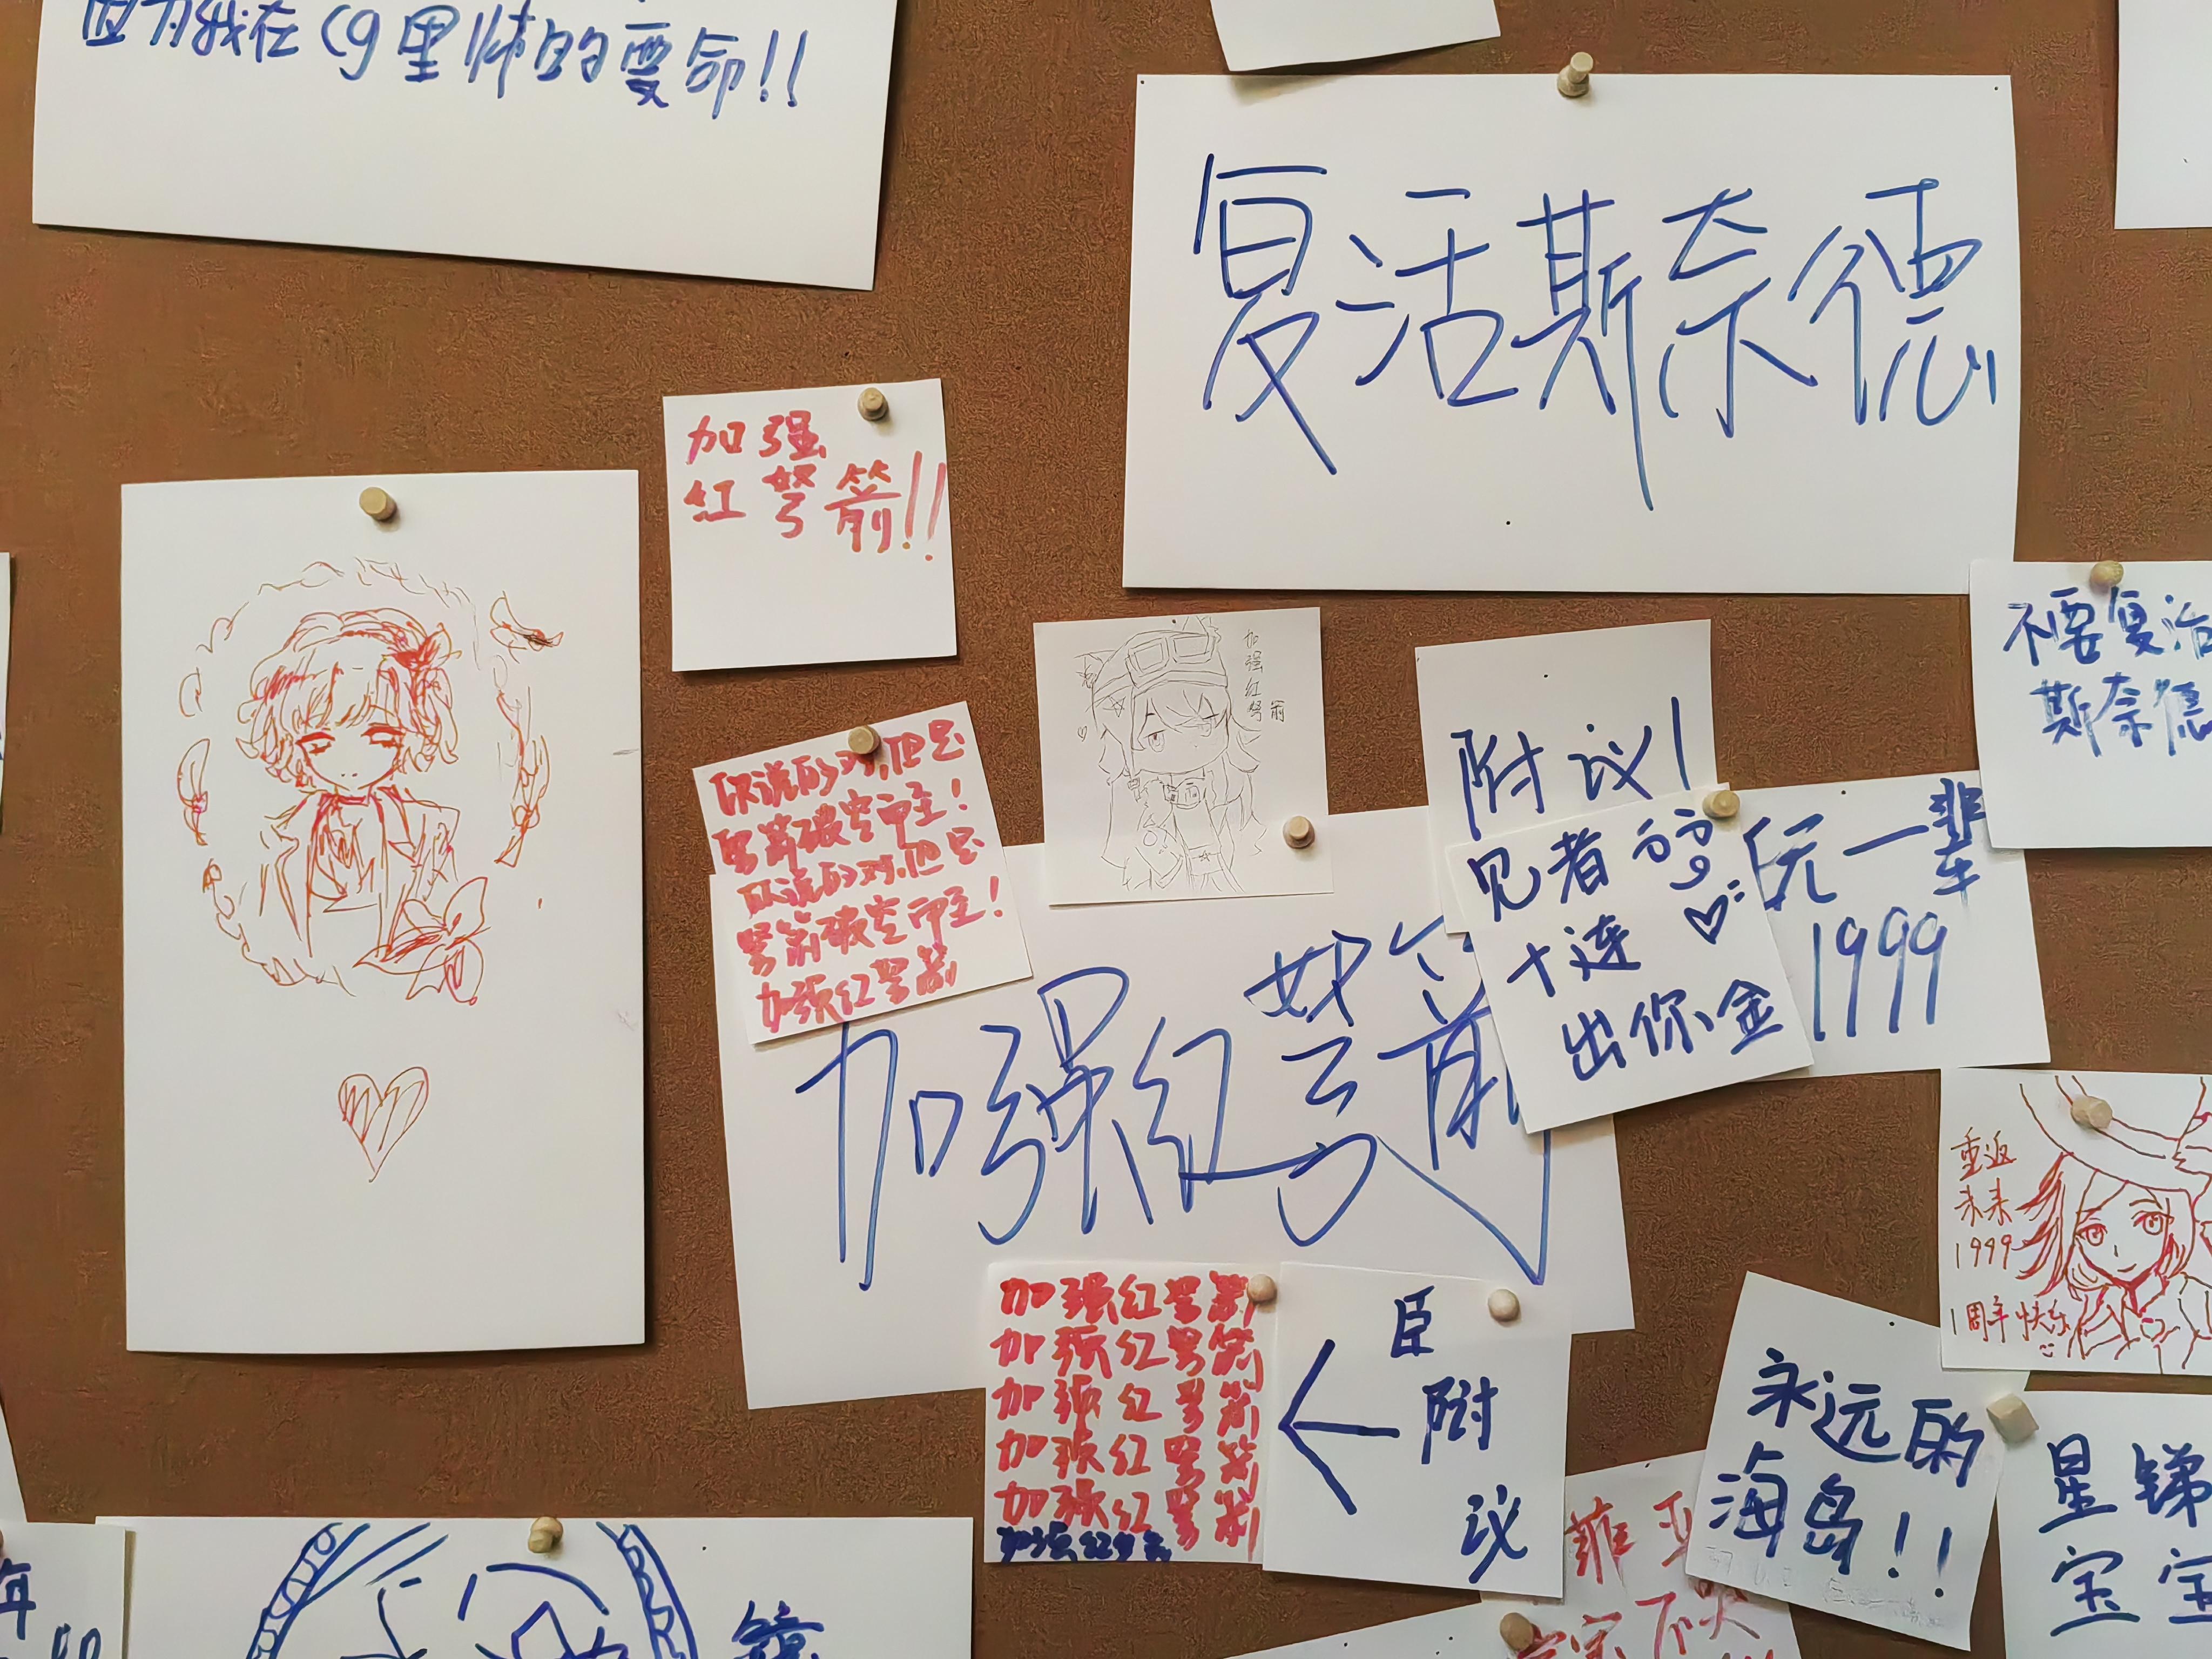 因为我在cg里怖的要命!!
复活斯奈德
加强
红弩箭!!
不要复活
斯奈德
加强红弩箭
你说的对,但是
弩箭破空而至!
你说的对,但是
弩箭破空而至!
加强红弩箭
附议!
见者
十连
出你金
玩一辈
1999
加强红弩箭
重返
未来
1999
1周年快乐
加强红弩箭
加强红弩箭
加强红弩箭
加强红弩箭
加强红弩箭
臣
附
议
永远的
海岛!!
星锑
宝宝
年
镜